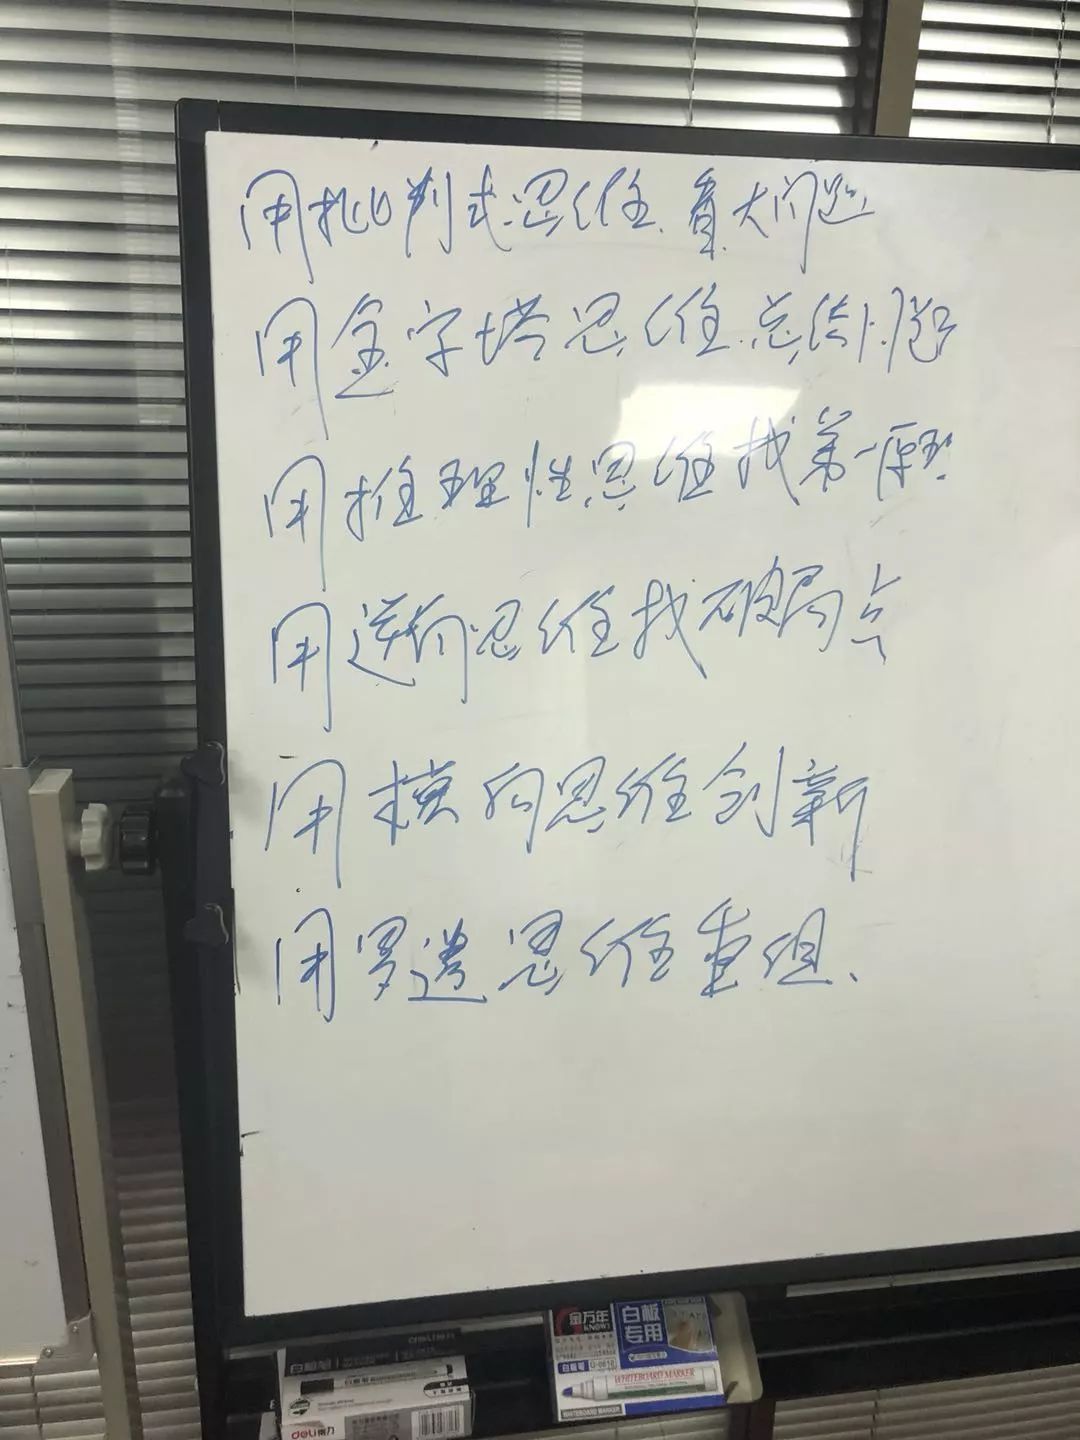 用批判式思维看大问题
用金字塔思维总结问题
用推理性思维找第一原理
用逆向思维找破局点
用横向思维创新
用思维重组、
金万年
白板
专用
白板笔 G-0610
WHITEBOARD MARKER
WHITEBOARD MARKER
白板笔
deli得力